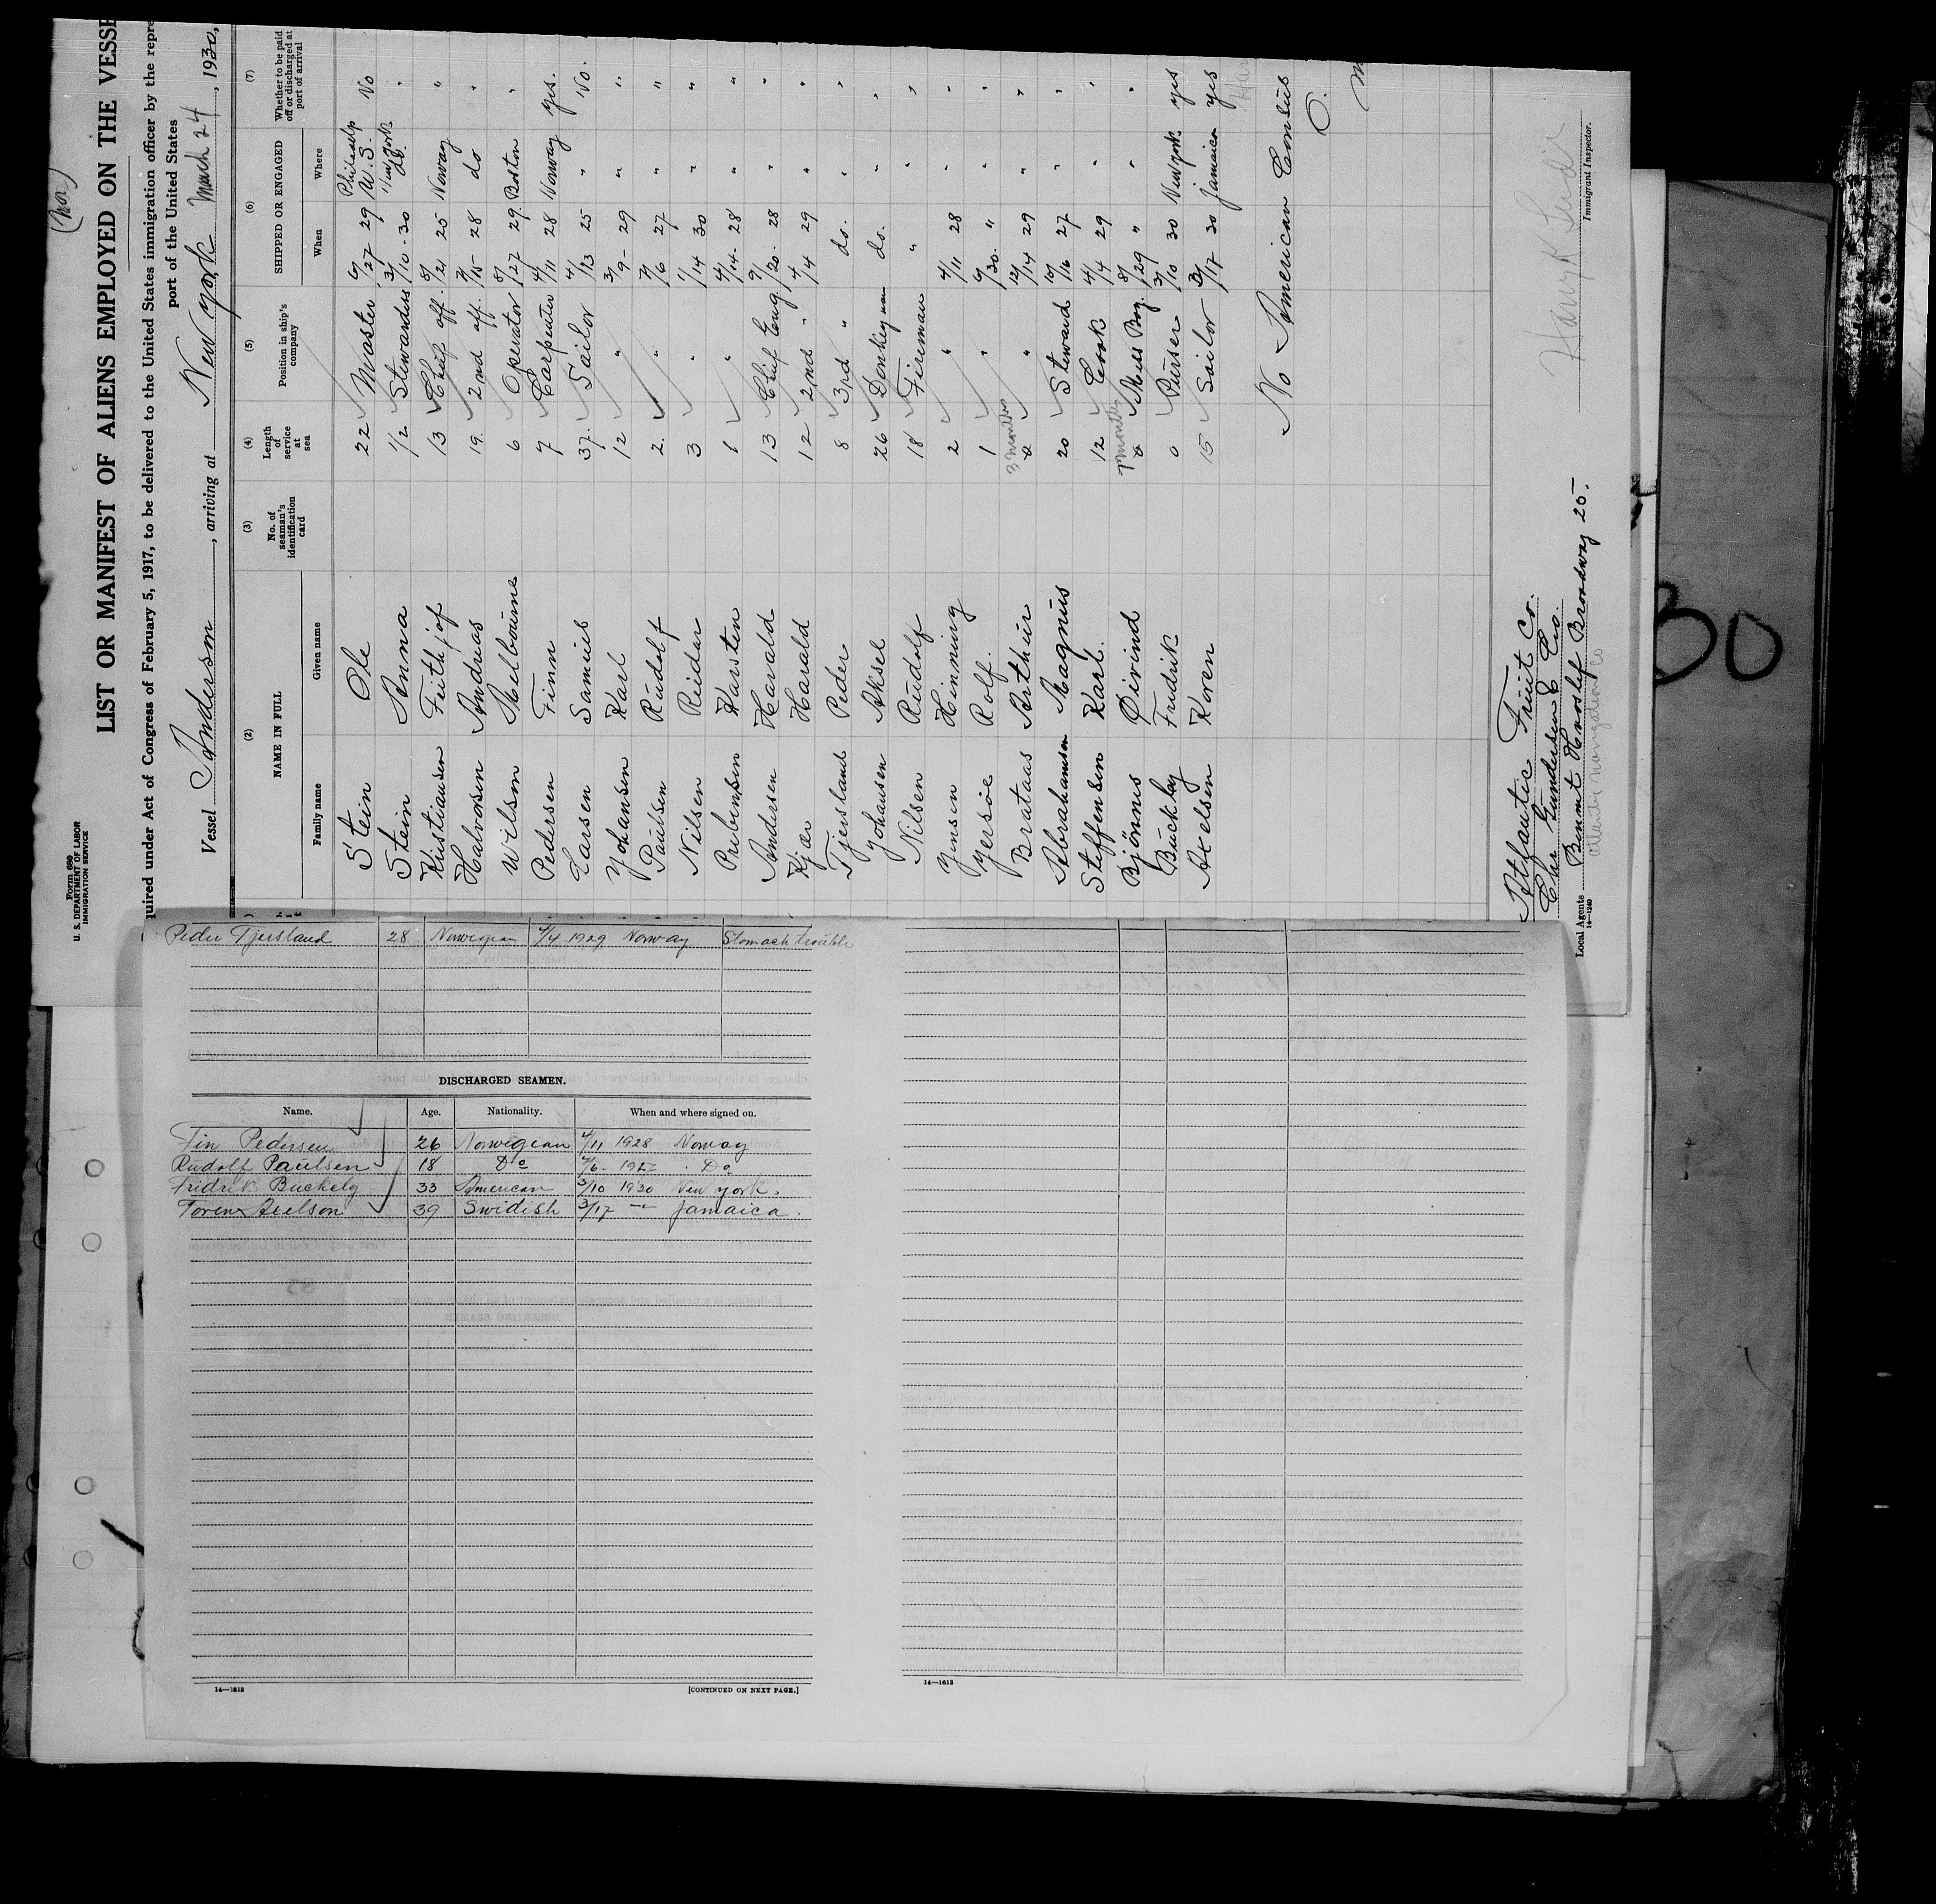 (nor)
Form 680
U. S. DEPARTMENT OF LABOR
IMMIGRATION SERVICE
LIST OR MANIFEST OF ALIENS EMPLOYED ON THE VESSE
quired under Act of Congress of February 5, 1917, to be delivered to the United States immigration officer by the repre
port of the United States
Vessel Sanderson, arriving at New York March 24, 1930,
(2) (3) (4) (5) (6) (7)
NAME IN FULL No. of seaman's identification card Length of service at sea Position in ship's company SHIPPED OR ENGAGED Whether to be paid off or discharged at port of arrival
Family name Given name When Where
Stein Ole 22 Master 6/27 29 Philadelp U.S. No
Stein Anna 1/2 Stewardess 3/10 - 30 New York do. "
Kristiansen Frithjof 13 Chief off. 8/21 25 Norway "
Halvorsen Andreas 19. 2nd off. 7/15 28 do "
Wilson Melbourne 6 Operator 8/27 29. Boston "
Pedersen Finn 7 Carpenter 4/11 28 Norway yes.
Larsen Samuel 37. Sailor 4/13 25 " No.
Johansen Karl 12 " 3/9 - 29 " "
Paulsen Rudolf 2. " 7/6 27 " "
Nilsen Reidar 3 " 1/14 30 " "
Prebensen Karsten 1 " 4/14 - 28 " "
Andersen Harald 13 Chief Eng. 9/20. 28 " "
Kjær Harald 12 2nd " 4/4 29 " "
Tjersland Peder 8 3rd " do. " "
Johansen Aksel 26 Donkeyman do. " "
Nilsen Rudolf 18 Fireman " " "
Jensen Henning 2 " 4/11 28 " "
Jersöe Rolf. 1 " 9/30. " " "
Brataas Arthur 3 months 0 " 12/14 29 " "
Abrahamsen Magnus 20 Steward 10/16 27 " "
Steffensen Karl. 12 Cook 4/4 29 " "
Björnnes Øivind 7 months 0 Mess Boy. 8/29 " " "
Buckley Fredrik 0 Purser 3/10 30 New York yes
Axelsen Koren 15 Sailor 3/17 30 Jamaica yes
No American Consus
Atlantic Fruit Co.
Chr Gundersen & Co.
Local Agents Bennet Hvoslef Broadway 25.
Atlantic Navigation Co
14-1240
Immigrant Inspector.
Peder Tjersland 28 Norwegian 4/4 1929 Norway Stomach trouble
DISCHARGED SEAMEN.
Name. Age. Nationality. When and where signed on.
Fin Pedersen 26 Norwegian 4/11 1928 Norway
Rudolf Paulsen 18 Do 7/6 - 1927 Do
Fridrik Buckely 33 American 3/10 1930 New York.
Toren Axelson 39 Swidish 3/17 -"- Jamaica.
14—1613
[CONTINUED ON NEXT PAGE.]
14—1613
30